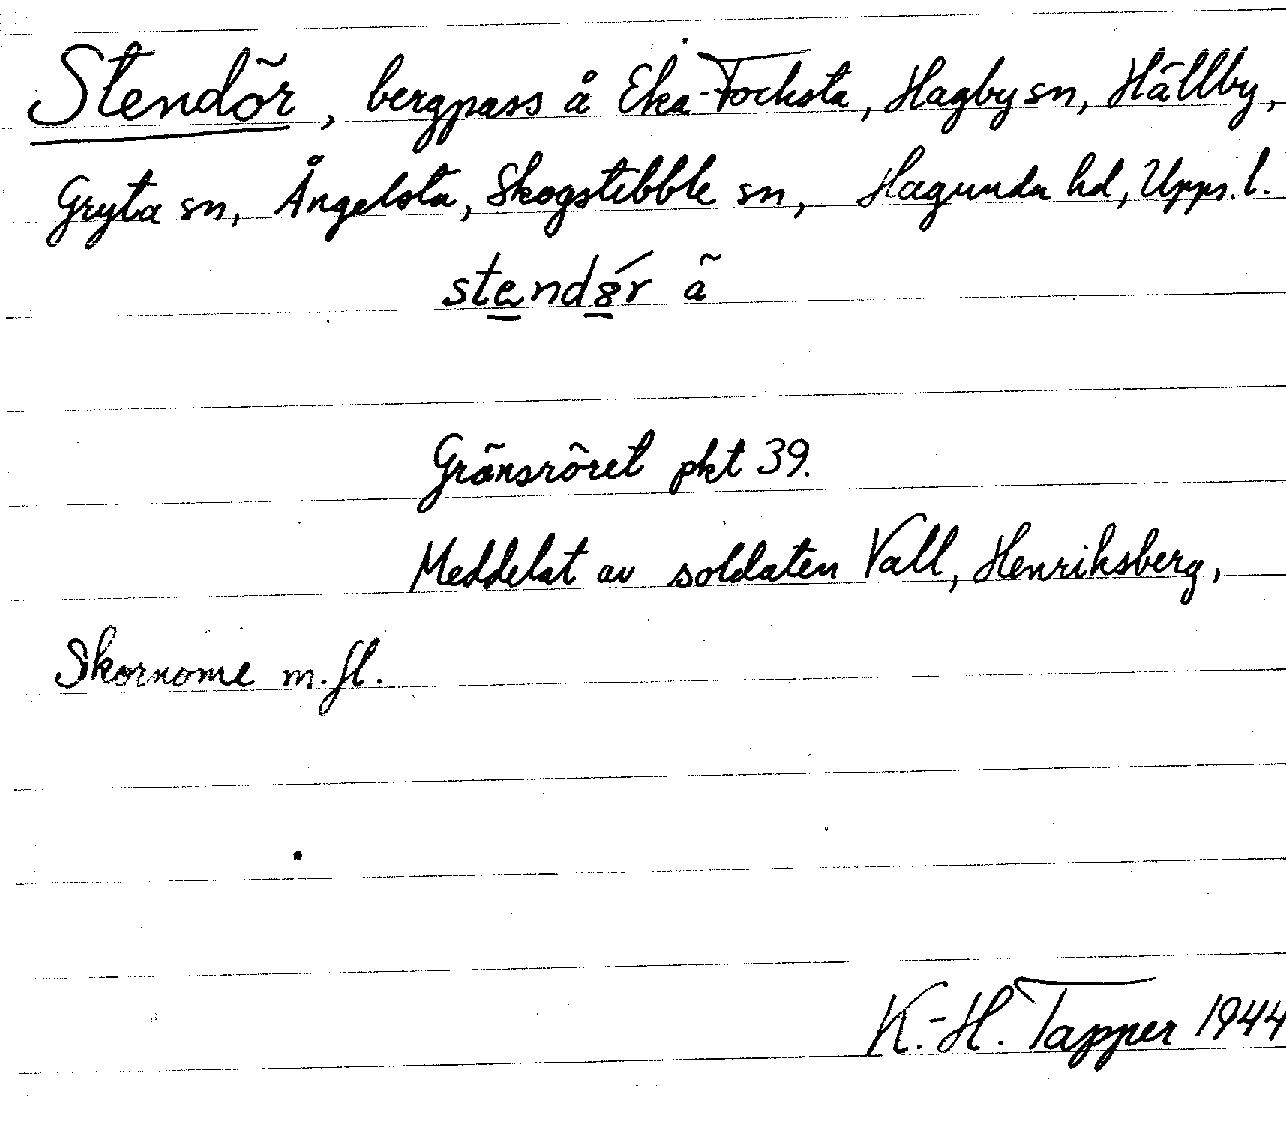 Stendör, bergpass å Eka-Focksta, Hagby sn, Hällby,
Gryta sn, Ångelsta, Skogstibble sn, Hagunda hd, Upps. l.
stendȣ́r ã
Gränsröret pkt 39.
Meddelat av soldaten Vall, Henriksberg,
Skornome m.fl.
K.-H. Tapper 1944